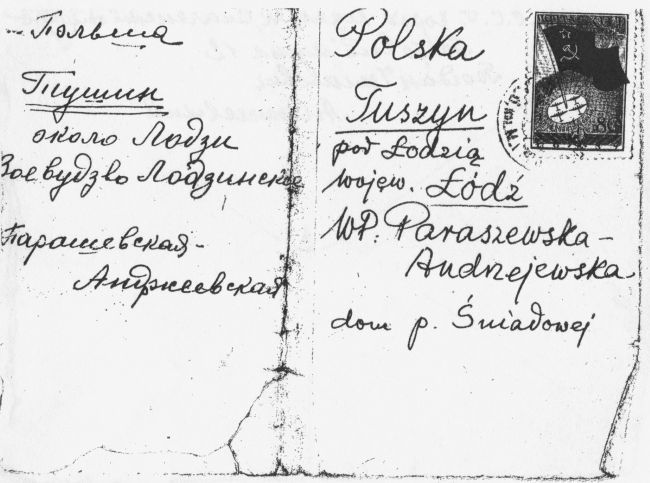 Польша
Тушин
около Лодзи
Воевудзво Лодзинское
Парашевская-
Анджеевская
Polska
Tuszyn
pod Łodzią
wojew. Łódź
WP. Paraszewska-
Andrzejewska
dom p. Śniadowej